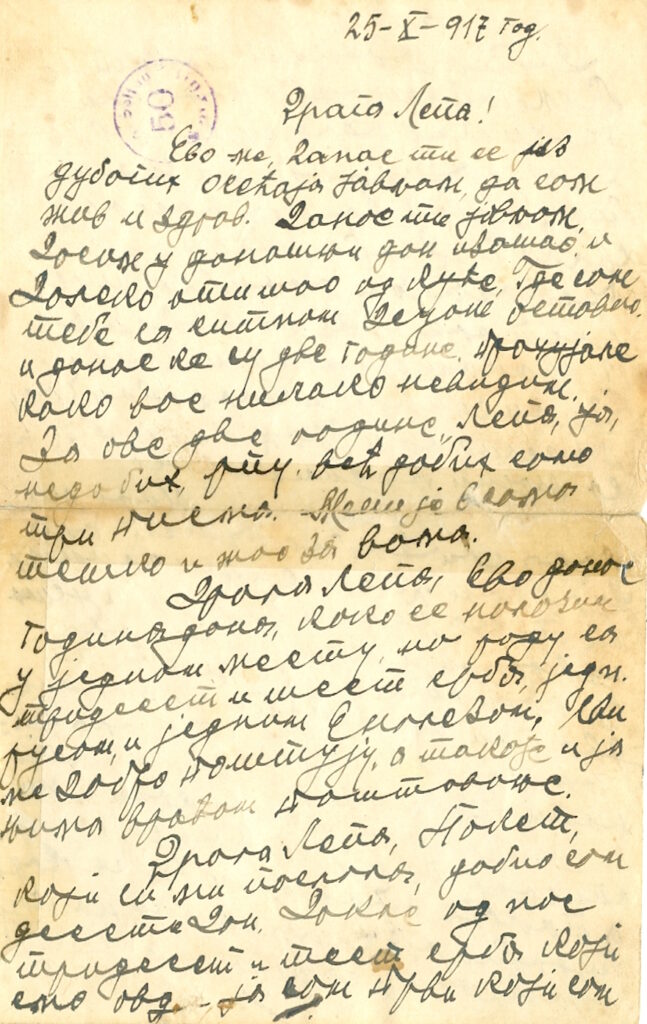 25-X-917 год.
50
Драга Лепа!
Ево ме, данас ти се из
дубоких осећаја јављам, да сам
жив и здрав. Данас ти јављам,
да сам у данашњи дан изашао и
далеко отишао од куће, Где сам
тебе са ситном децом оставио.
и данас ће су две године. прохујале
како вас никако невидим,
За ове две године, Лепа, ја,
недобих, рпу. већ добих само
три писма. Мени је веома
тешко и жао За вама.
Драга Лепа, Ево данас
година дана, како се налазим
у једном месту, на раду са
тридесет и шест срба, једн.
русом, и једним Енглезом, Сви
ме добро поштују, а такође и ја
њима враћам поштовање.
Драга Лепа, Пакет,
који си ми послала, добио сам
десети дан. Дакле од нас
тридесет и шест срба који
смо овд ја сам први који сам